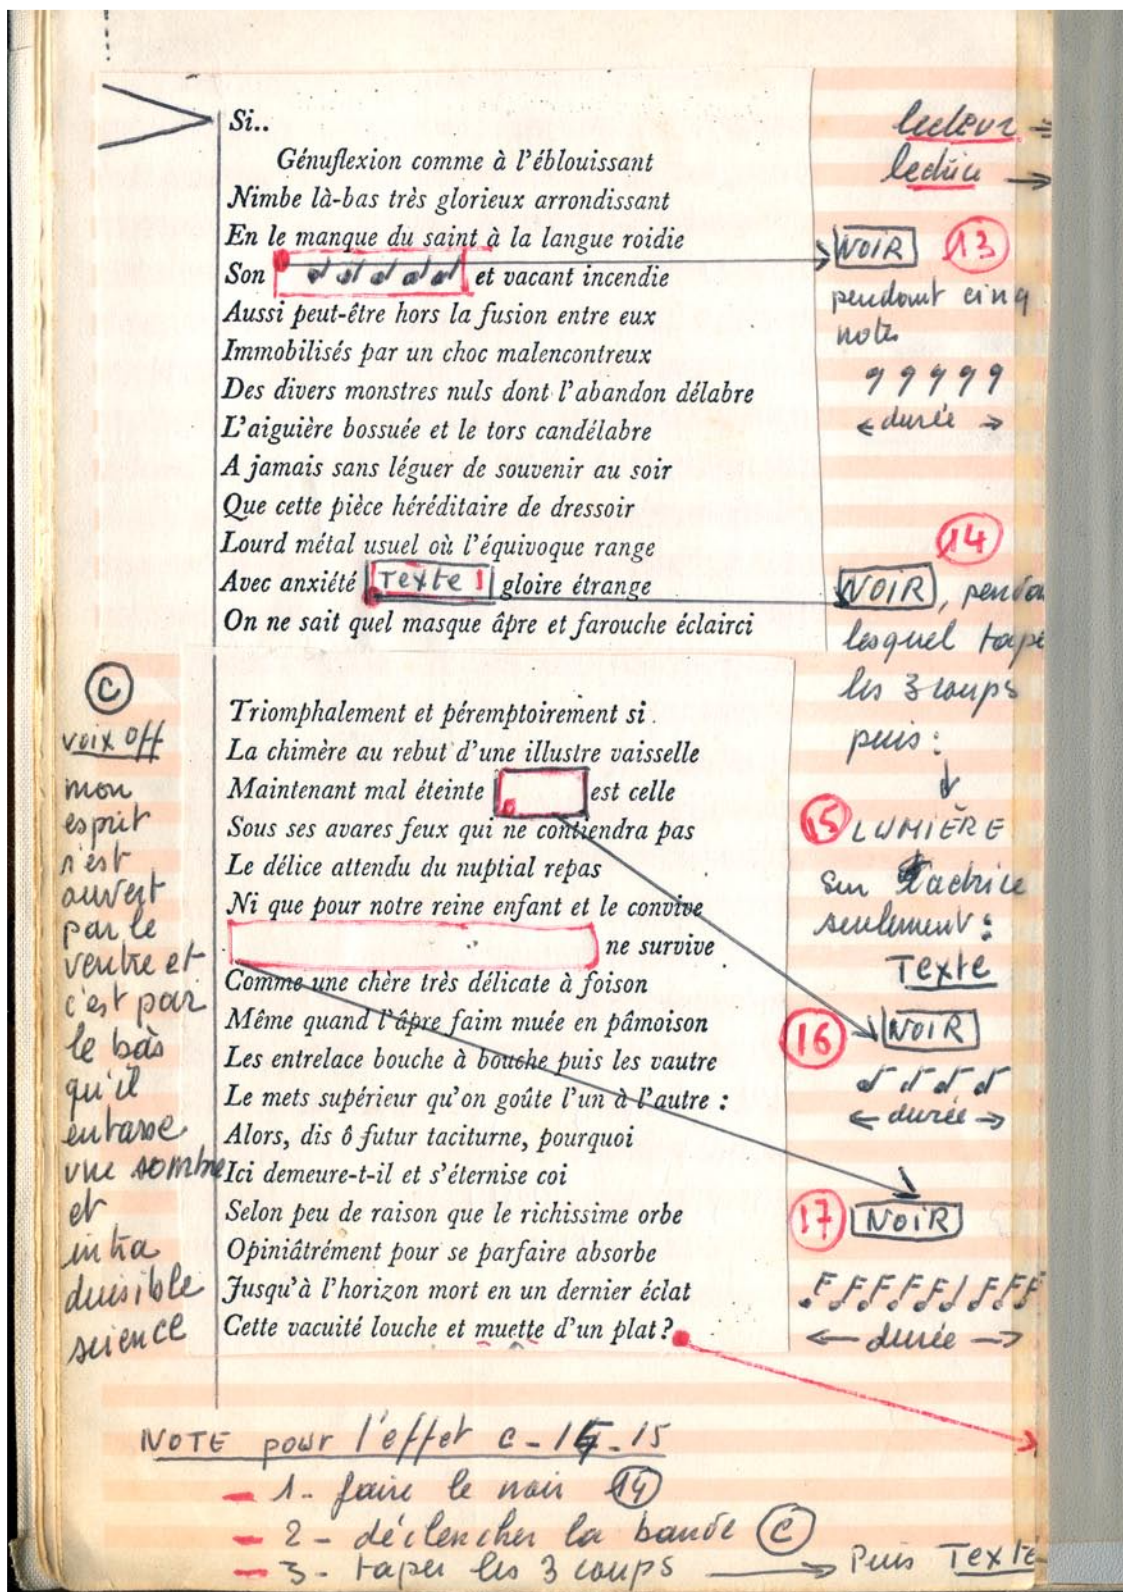 Si..
Génuflexion comme à l'éblouissant
Nimbe là-bas très glorieux arrondissant
En le manque du saint à la langue roidie
Son et vacant incendie
Aussi peut-être hors la fusion entre eux
Immobilisés par un choc malencontreux
Des divers monstres nuls dont l'abandon délabre
L'aiguière bossuée et le tors candélabre
A jamais sans léguer de souvenir au soir
Que cette pièce héréditaire de dressoir
Lourd métal usuel où l'équivoque range
Avec anxiété Texte 1 gloire étrange
On ne sait quel masque âpre et farouche éclairci
Triomphalement et péremptoirement si.
La chimère au rebut d'une illustre vaisselle
Maintenant mal éteinte est celle
Sous ses avares feux qui ne contiendra pas
Le délice attendu du nuptial repas
Ni que pour notre reine enfant et le convive
ne survive
Comme une chère très délicate à foison
Même quand l'âpre faim muée en pâmoison
Les entrelace bouche à bouche puis les vautre
Le mets supérieur qu'on goûte l'un à l'autre :
Alors, dis ô futur taciturne, pourquoi
Ici demeure-t-il et s'éternise coi
Selon peu de raison que le richissime orbe
Opiniâtrément pour se parfaire absorbe
Jusqu'à l'horizon mort en un dernier éclat
Cette vacuité louche et muette d'un plat?
C
voix off
mon
esprit
s'est
ouvert
par le
ventre et
c'est par
le bas
qu'il
entasse
une sombre
et
intra
duisible
science
lecteur =
lectrice →
NOIR 13
pendant cinq
notes
← durée →
14
NOIR, pendan
lesquel tape
les 3 coups
puis :
15 LUMIÈRE
sur l'actrice
seulement :
Texte
16 NOIR
← durée →
17 NOIR
← durée →
NOTE pour l'effet C-14-15
1- faire le noir 14
2- déclencher la bande C
3- taper les 3 coups → Puis Texte